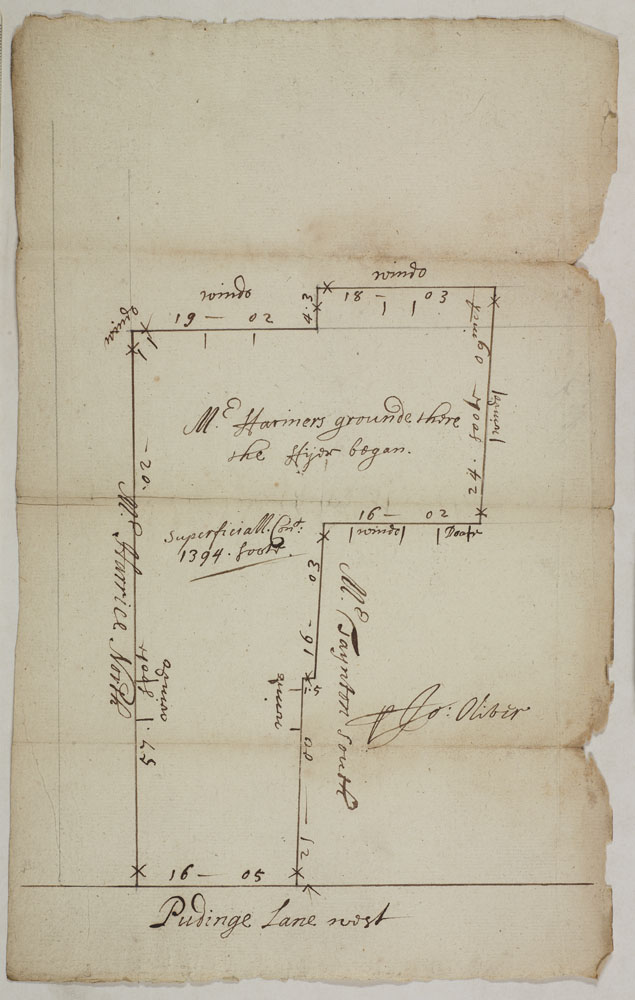 windo
18 — 03
windo
4.3
19 — 02
Mr Hariners grounde there
the ffyer began.
24. foot — 09 inch
20.
16 — 02
windo
Doore
superficiall. Cont:
1394. foote.
Mr Harrice North
16 — 03
Mr Taynton South
Jo: Oliver
45
12 — 00
16 — 05
Pudinge Lane west